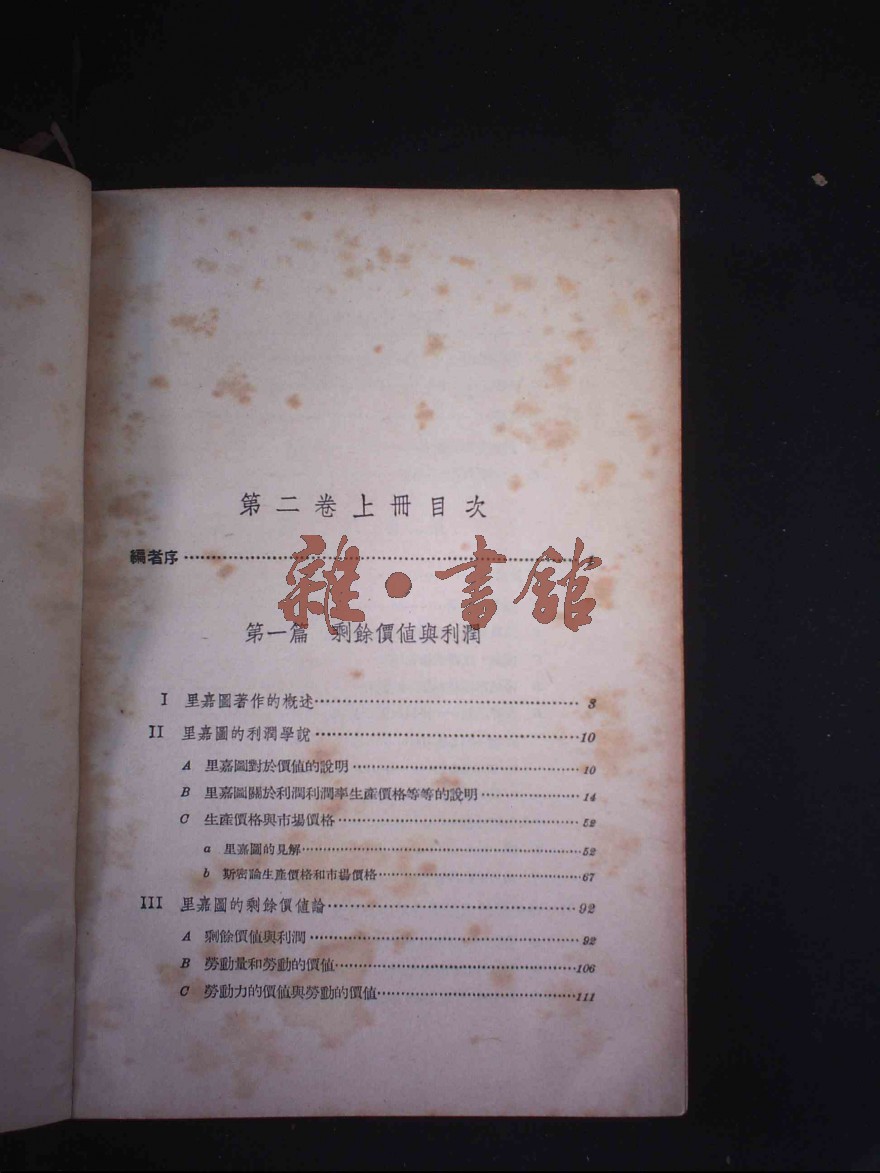 第二卷上冊目次
編者序……1
雜·書館
第一篇 剩餘價值與利潤
I 里嘉圖著作的概述……3
II 里嘉圖的利潤學說……10
A 里嘉圖對於價値的說明……10
B 里嘉圖關於利潤利潤率生產價格等等的說明……14
C 生產價格與市場價格……52
a 里嘉圖的見解……52
b 斯密論生產價格和市場價格……67
III 里嘉圖的剩餘價値論……92
A 剩餘價値與利潤……92
B 勞動量和勞動的價値……106
C 勞動力的價値與勞動的價値……111